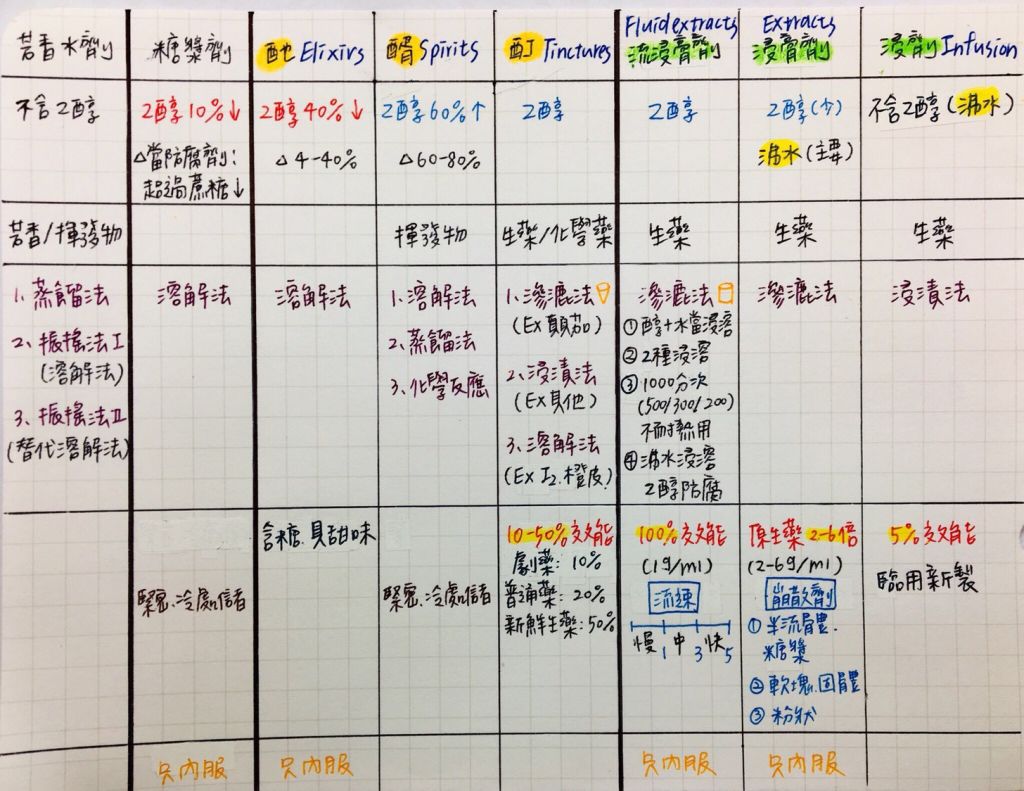 芳香水劑
糖漿劑
酏 Elixirs
醑 Spirits
酊 Tinctures
Fluidextracts
流浸膏劑
Extracts
浸膏劑
浸劑 Infusion
不含乙醇
乙醇10%↓
△當防腐劑:
超過蔗糖↓
乙醇40%↓
△4-40%
乙醇60%↑
△60-80%
乙醇
乙醇
乙醇(少)
沸水(主要)
不含乙醇(沸水)
芳香/揮發物
揮發物
生藥/化學藥
生藥
生藥
生藥
1.蒸餾法
2.振搖法I
(溶解法)
3.振搖法II
(替代溶解法)
溶解法
溶解法
1.溶解法
2.蒸餾法
3.化學反應
1.滲漉法
(Ex顛茄)
2.浸漬法
(Ex其他)
3.溶解法
(Ex I2.橙皮)
滲漉法
①醇+水當浸溶
②2種浸溶
③1000分次
(500/300/200)
不耐熱用
④沸水浸溶
乙醇防腐
滲漉法
浸漬法
緊密、冷處儲者
含糖、具甜味
緊密、冷處儲者
10-50%效能
劇藥:10%
普通藥:20%
新鮮生藥:50%
100%效能
(1g/ml)
流速
慢 1 中 3 快 5
原生藥2-6倍
(2-6g/ml)
①半流體.
糖漿
②軟塊.固體
③粉狀
5%效能
臨用新製
只內服
只內服
只內服
只內服